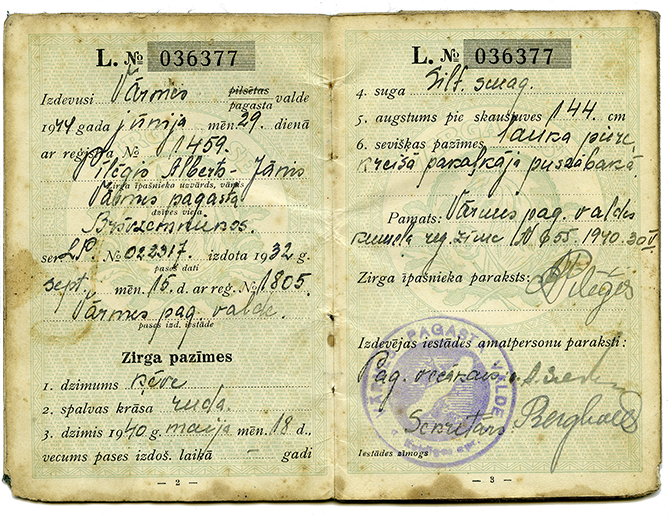 L. № 036377
Izdevusi Vārmes pilsētas
pagasta valde
1944 gada jūnija mēn. 29. dienā
ar reģistra № 1459.
Pilēģis Alberts-Jānis
Zirga īpašnieka uzvārds, vārds
Vārmes pagasta
dzīves vieta
ser. LP. № 022317. izdota 1932 g.
pases dati
sept. mēn. 15. d. ar reģ. № 1805.
Vārmes pag. valde.
pases izd. iestāde
Zirga pazīmes
1. dzimums ķēve
2. spalvas krāsa ruda.
3. dzimis 1940 g. maija mēn. 18 d.,
vecums pases izdoš. laikā – gadi
— 2 —
L. № 036377
4. suga Silt. smag.
5. augstums pie skaušuves 144 cm
6. sevišķas pazīmes lauka pierē,
kreisā pakaļkāja pusābakā
Pamats: Vārmes pag. valdes
kumeļa reg. zīme № 655. 1940. 30
Zirga īpašnieka paraksts: Pilēģis
Izdevējas iestādes amatpersonu paraksti:
Pag. vecākais
Sekretārs
Iestādes zīmogs
PAGASTA VALDE
— 3 —